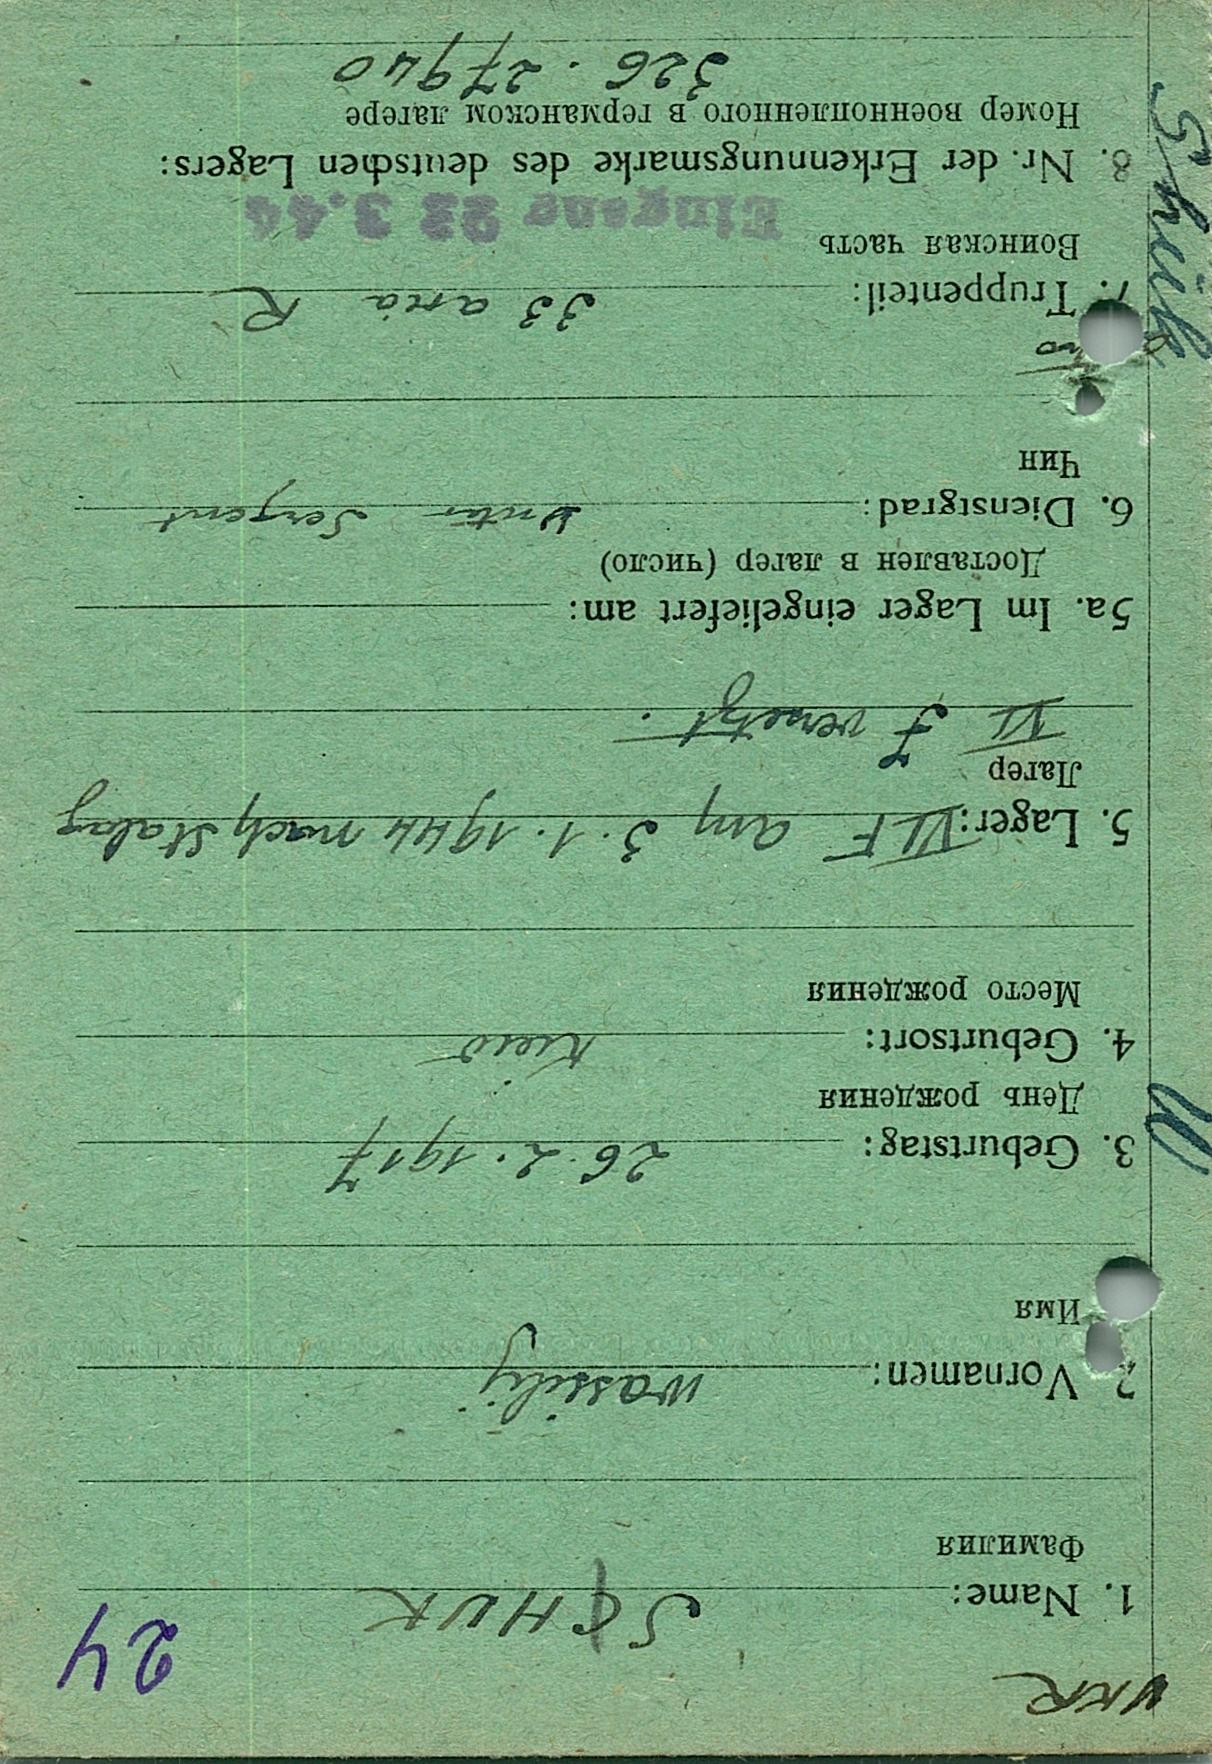 UKR
24
1. Name: SCHUK
Фамилия
2. Vornamen: Wassilij
Имя
3. Geburtstag: 26.2.1917
День рождения
4. Geburtsort: Kiew
Место рождения
5. Lager: VI F am 3.1.1944 nach Stalag
Лагер
VI J versetzt.
5a. Im Lager eingeliefert am:
Доставлен в лагер (число)
6. Dienstgrad: Unter Sergent
Чин
7. Truppenteil: 33 R
Воинская часть
Eingang 23 3.44
8. Nr. der Erkennungsmarke des deutschen Lagers:
Номер военнопленного в германском лагере
326. 27940